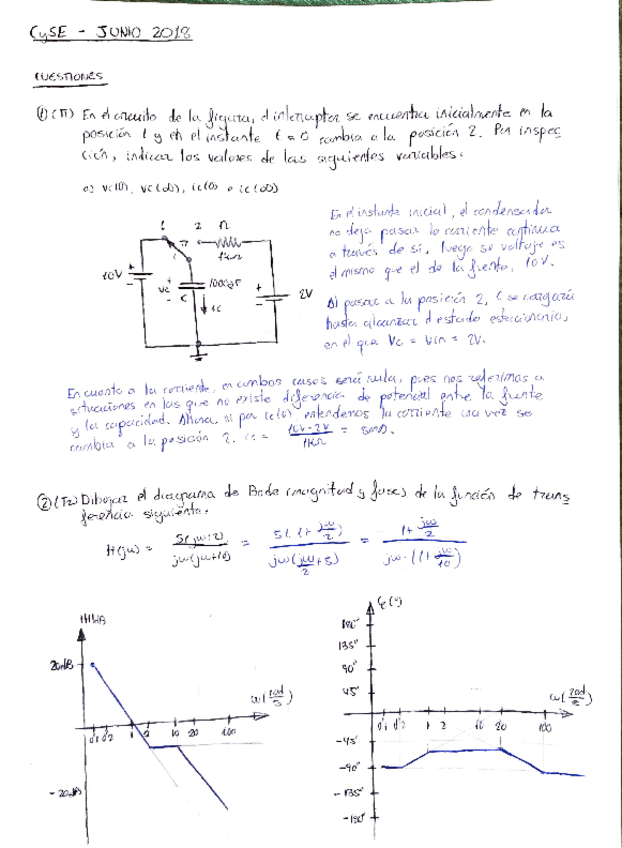 CySE - JUNIO 2018
CUESTIONES
① (T1) En el circuito de la figura, el interruptor se encuentra inicialmente en la
posición 1 y en el instante t=0 cambia a la posición 2. Por inspec
ción, indicar los valores de las siguientes variables.
a) vc(0), vc(∞), ic(0) e ic(∞)
1 2 R
1kΩ
10V
vc
C
100μF
ic
2V
En el instante inicial, el condensador
no deja pasar la corriente continua
a través de sí, luego su voltaje es
el mismo que el de la fuente, 10V.
Al pasar a la posición 2, C se cargará
hasta alcanzar el estado estacionario,
en el que Vc = Vin = 2V.
En cuanto a la corriente, en ambos casos será nula, pues nos referimos a
situaciones en las que no existe diferencia de potencial entre la fuente
y la capacidad. Ahora, si por ic(0) entendemos la corriente una vez se
cambia a la posición 2. ic = 10V-2V / 1kΩ = 8mA.
② (T2) Dibujar el diagrama de Bode (magnitud y fase) de la función de trans
ferencia siguiente.
H(jω) = 5(jω+2) / jω(jω+10) = 5(1+jω/2) / jω(jω/2+5) = 1+jω/2 / jω·(1+jω/10)
|H|dB
20dB
ω(rad/s)
0'1 0'2 1 2 10 20 100
-20dB
φ(°)
180°
135°
90°
45°
ω(rad/s)
0'1 0'2 1 2 10 20 100
-45°
-90°
-135°
-180°